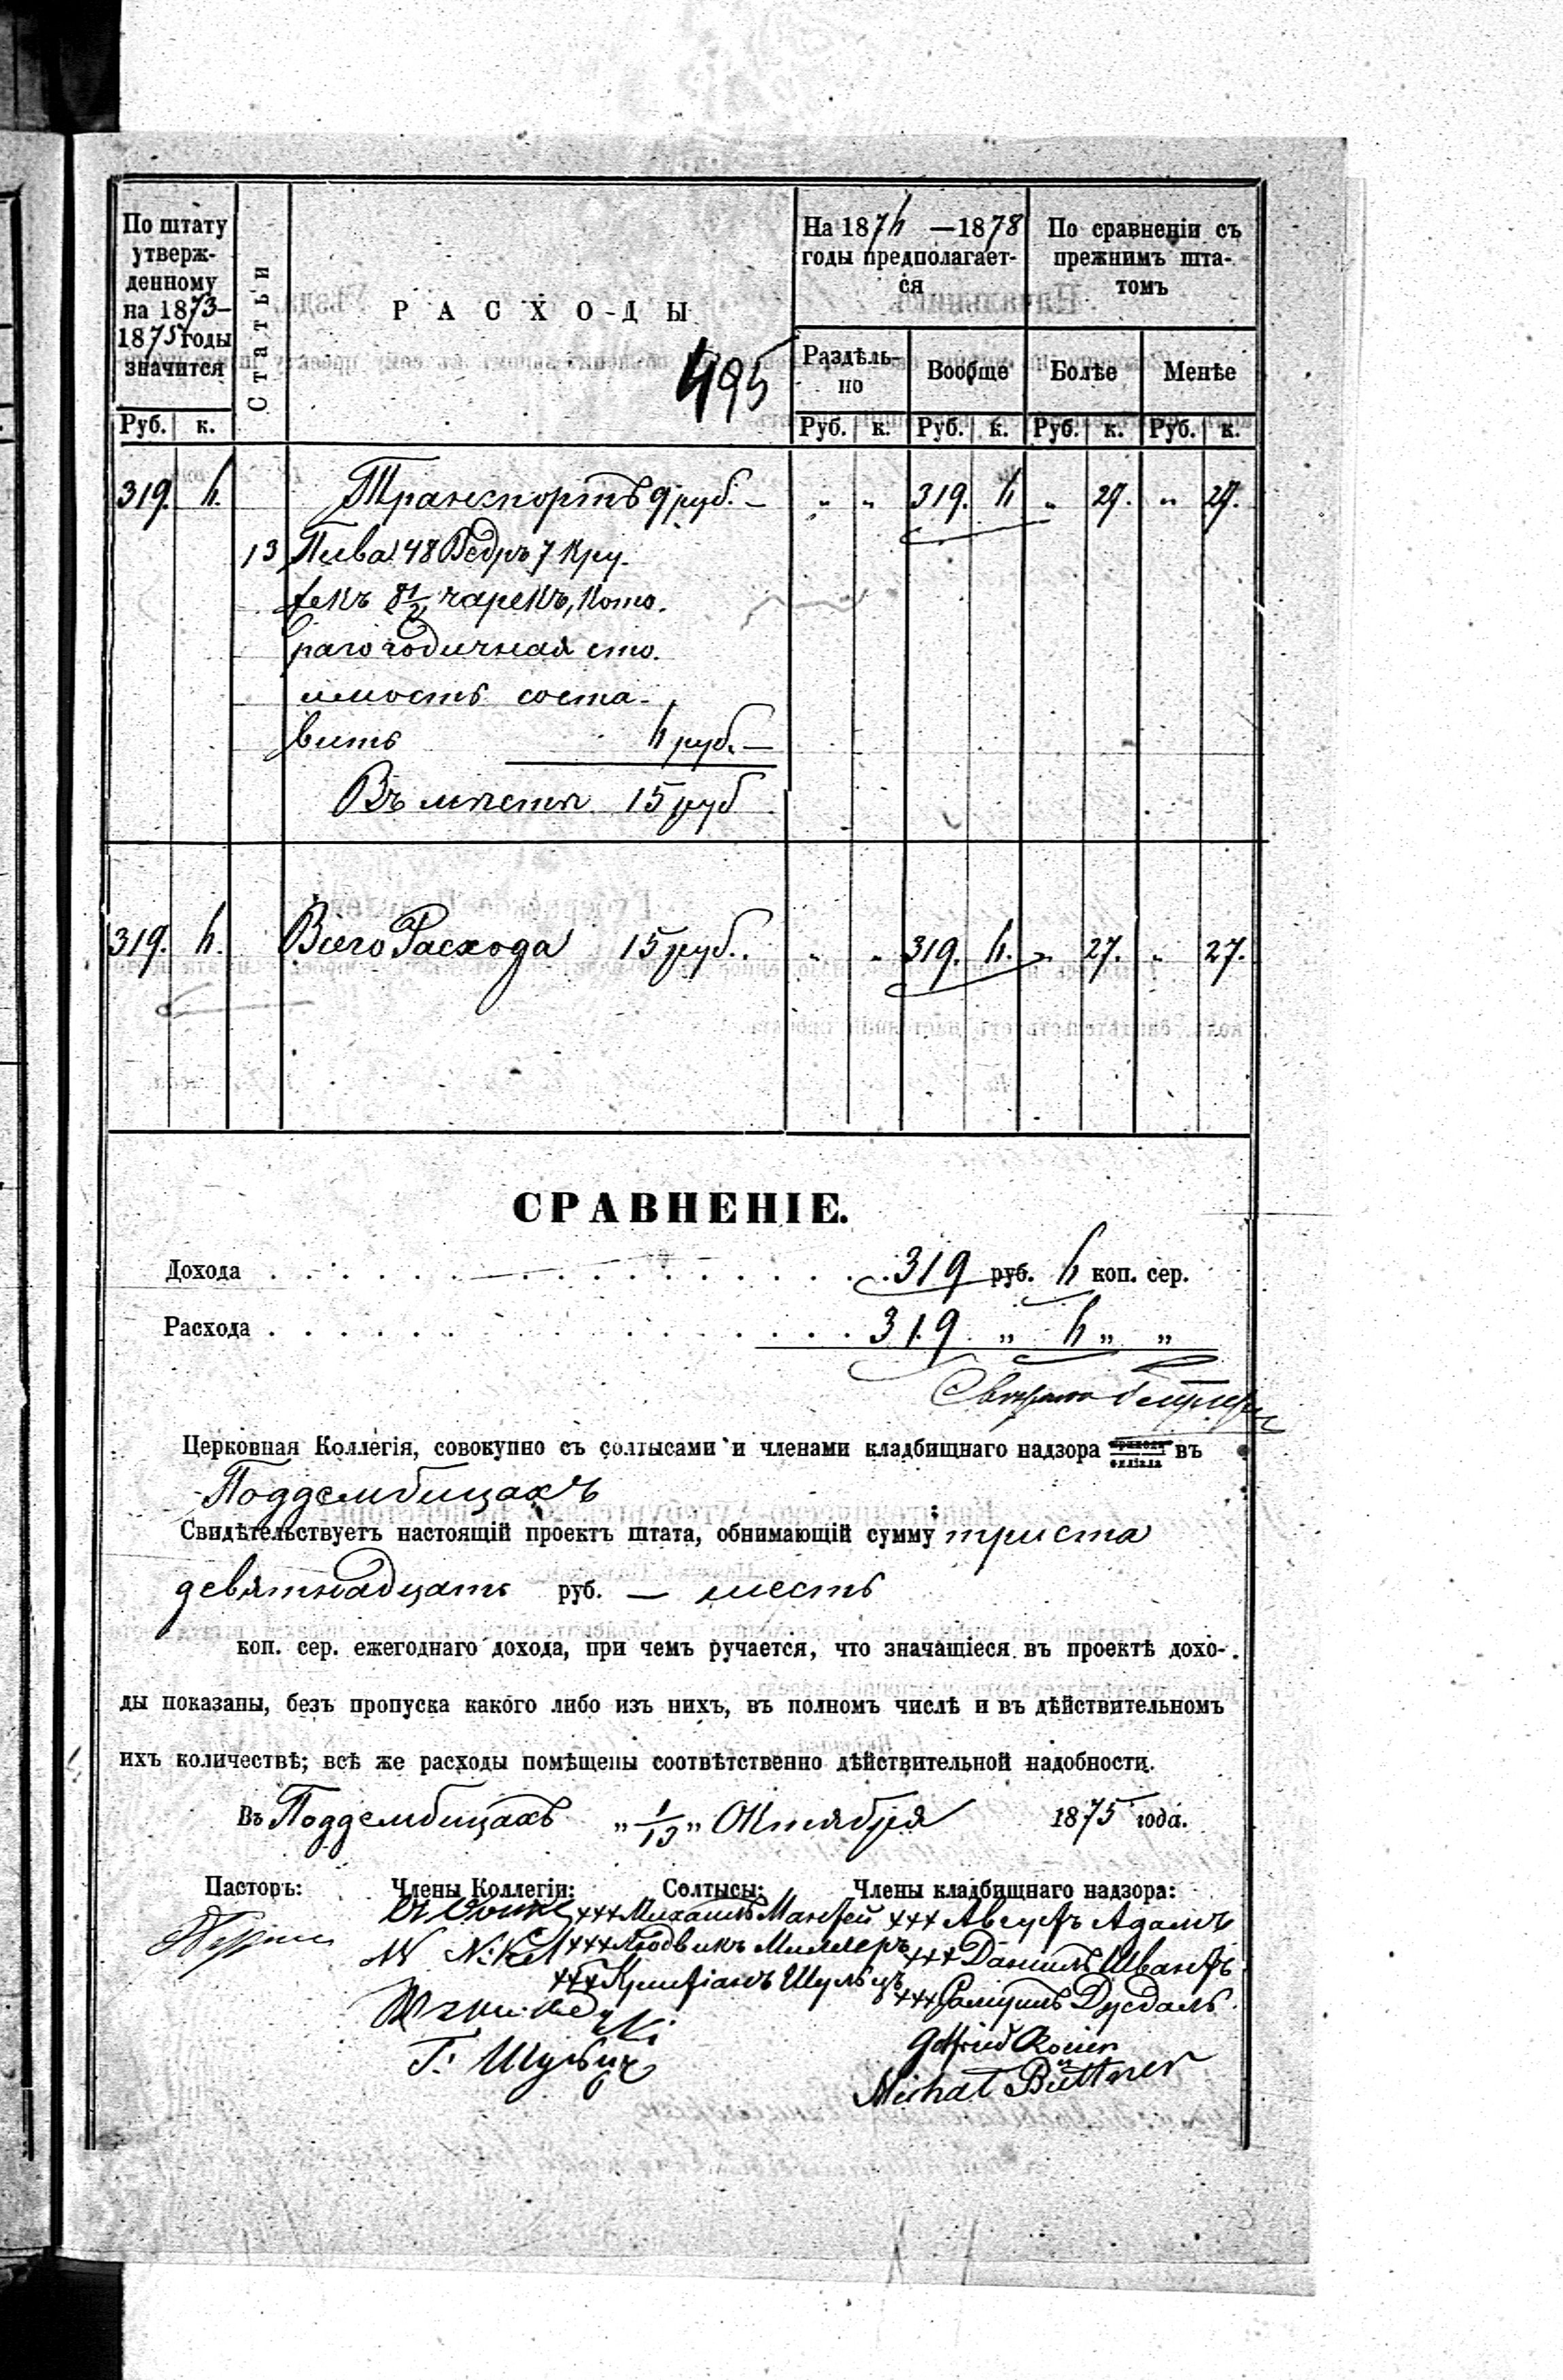 По штату утверж-
денному
на 1873-
1875 годы
значится
Статьи
РАСХОДЫ
495
На 1876 —1878
годы предполагает-
ся
По сравненіи съ
прежнимъ шта-
томъ
Раздѣль-
но
Вообще
Болѣе
Менѣе
Руб. к. Руб. к. Руб. к. Руб. к. Руб. к.
319. 6. Транспортъ 9 руб. — „ „ 319. 6 „ 27. „ 27.
13 Пива 48 Ведръ 7 кру-
жекъ 8 1/2 чарекъ, кото-
раго годичная сто-
имость соста-
витъ 6 руб. —
Въ мѣстѣ 15 руб
319. 6. Всего Расхода 15 руб. „ „ 319. 6. „ 27. „ 27.
СРАВНЕНІЕ.
Дохода . . . 319 руб. 6 коп. сер.
Расхода . . . 319 „ 6 „ „
Церковная Коллегія, совокупно съ солтысами и членами кладбищнаго надзора прихода филіала въ
Поддембицахъ
Свидѣтельствуетъ настоящій проектъ штата, обнимающій сумму триста
девятнадцать руб. — шесть
коп. сер. ежегоднаго дохода, при чемъ ручается, что значащіеся въ проектѣ дохо-
ды показаны, безъ пропуска какого либо изъ нихъ, въ полномъ числѣ и въ дѣйствительномъ
ихъ количествѣ; всѣ же расходы помѣщены соотвѣтственно дѣйствительной надобности.
Въ Поддембицахъ „1/13„ Октября 1875 года.
Пасторъ: Члены Коллегіи: Солтысы: Члены кладбищнаго надзора:
+++ Михаилъ Манжей +++ Августъ Адамъ
+++ Людвикъ Миллеръ +++ Даніилъ Шванкъ
+++ Шульцъ +++ Самуилъ Дусдаль
Г. Шульцъ Gotfried
Michał Büttner